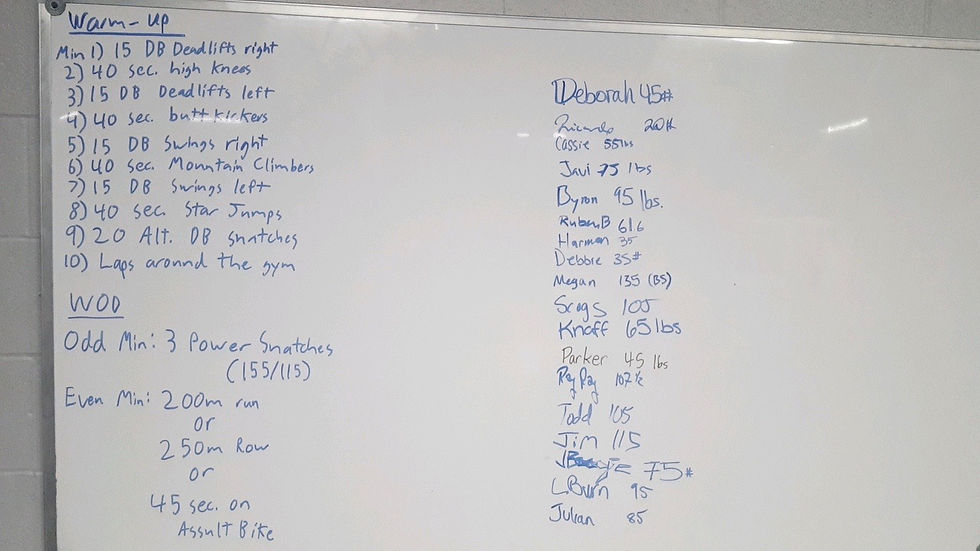 Warm-up
Min 1) 15 DB Deadlifts right
2) 40 sec. high knees
3) 15 DB Deadlifts left
4) 40 sec. butt kickers
5) 15 DB Swings right
6) 40 sec. Mountain Climbers
7) 15 DB Swings left
8) 40 sec. Star Jumps
9) 20 Alt. DB snatches
10) Laps around the gym
WOD
Odd Min: 3 Power Snatches
(155/115)
Even Min: 200m run
or
250m Row
or
45 sec. on
Assult Bike
Deborah 45#
Ricardo
Cassie 55lbs
Javi 75 lbs
Byron 95 lbs.
RubenB 616
Harman 35
Debbie 35#
Megan 135 (BS)
Scogs 105
Knoff 65lbs
Parker 45 lbs
Ray Ray 107½
Todd 105
Jim 115
75#
LBurn 95
Julian 85